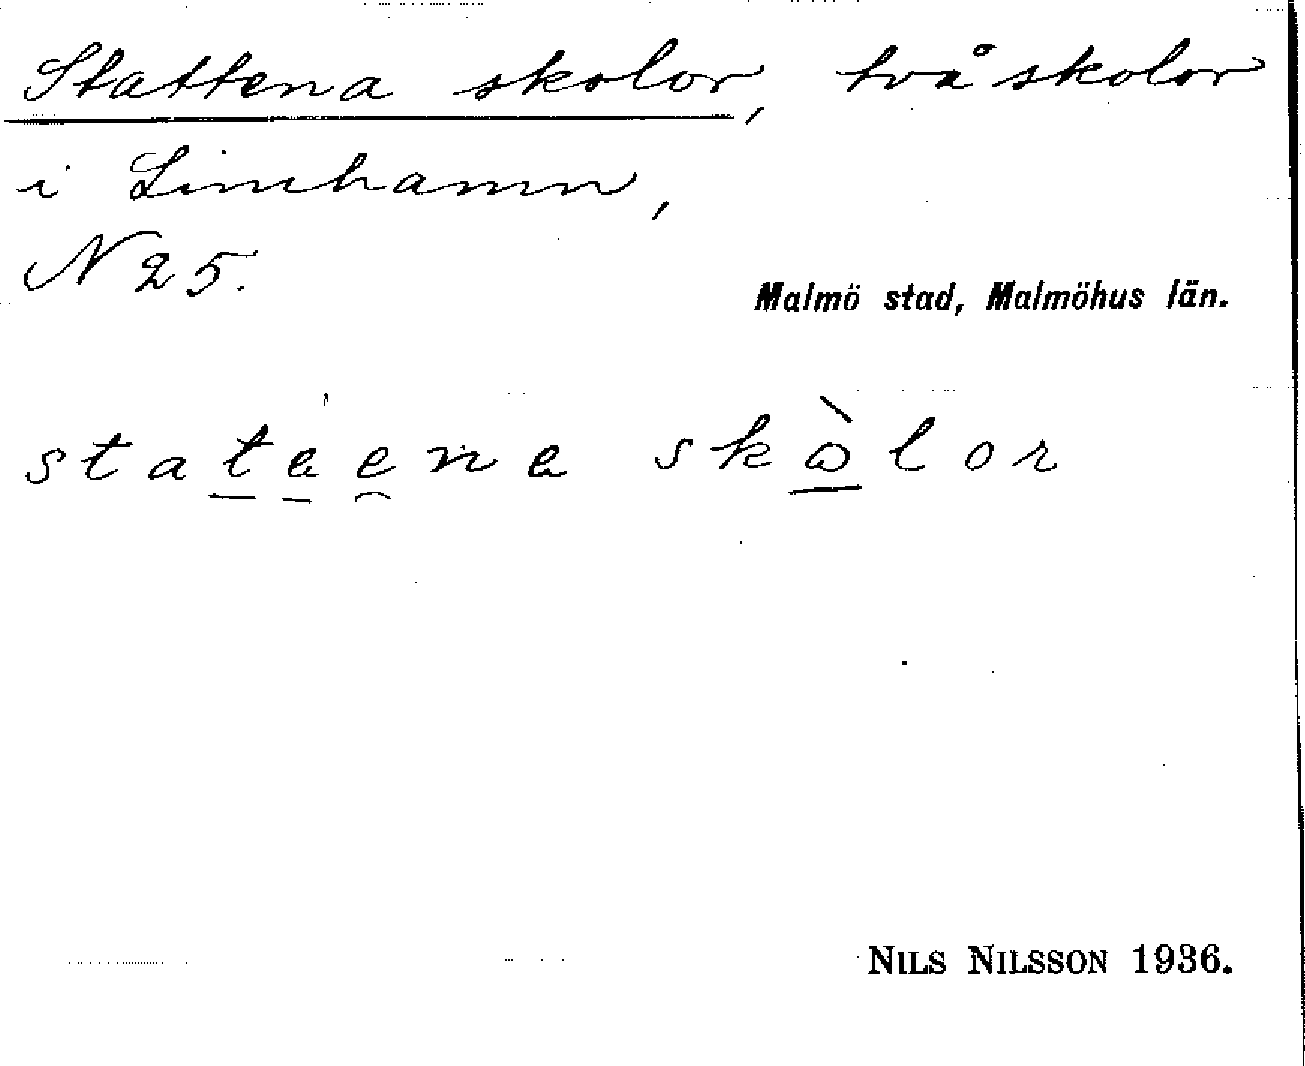 Stattena skolor, två skolor
i Limhamn,
N 25.
Malmö stad, Malmöhus län.
stataena skòlor
NILS NILSSON 1936.